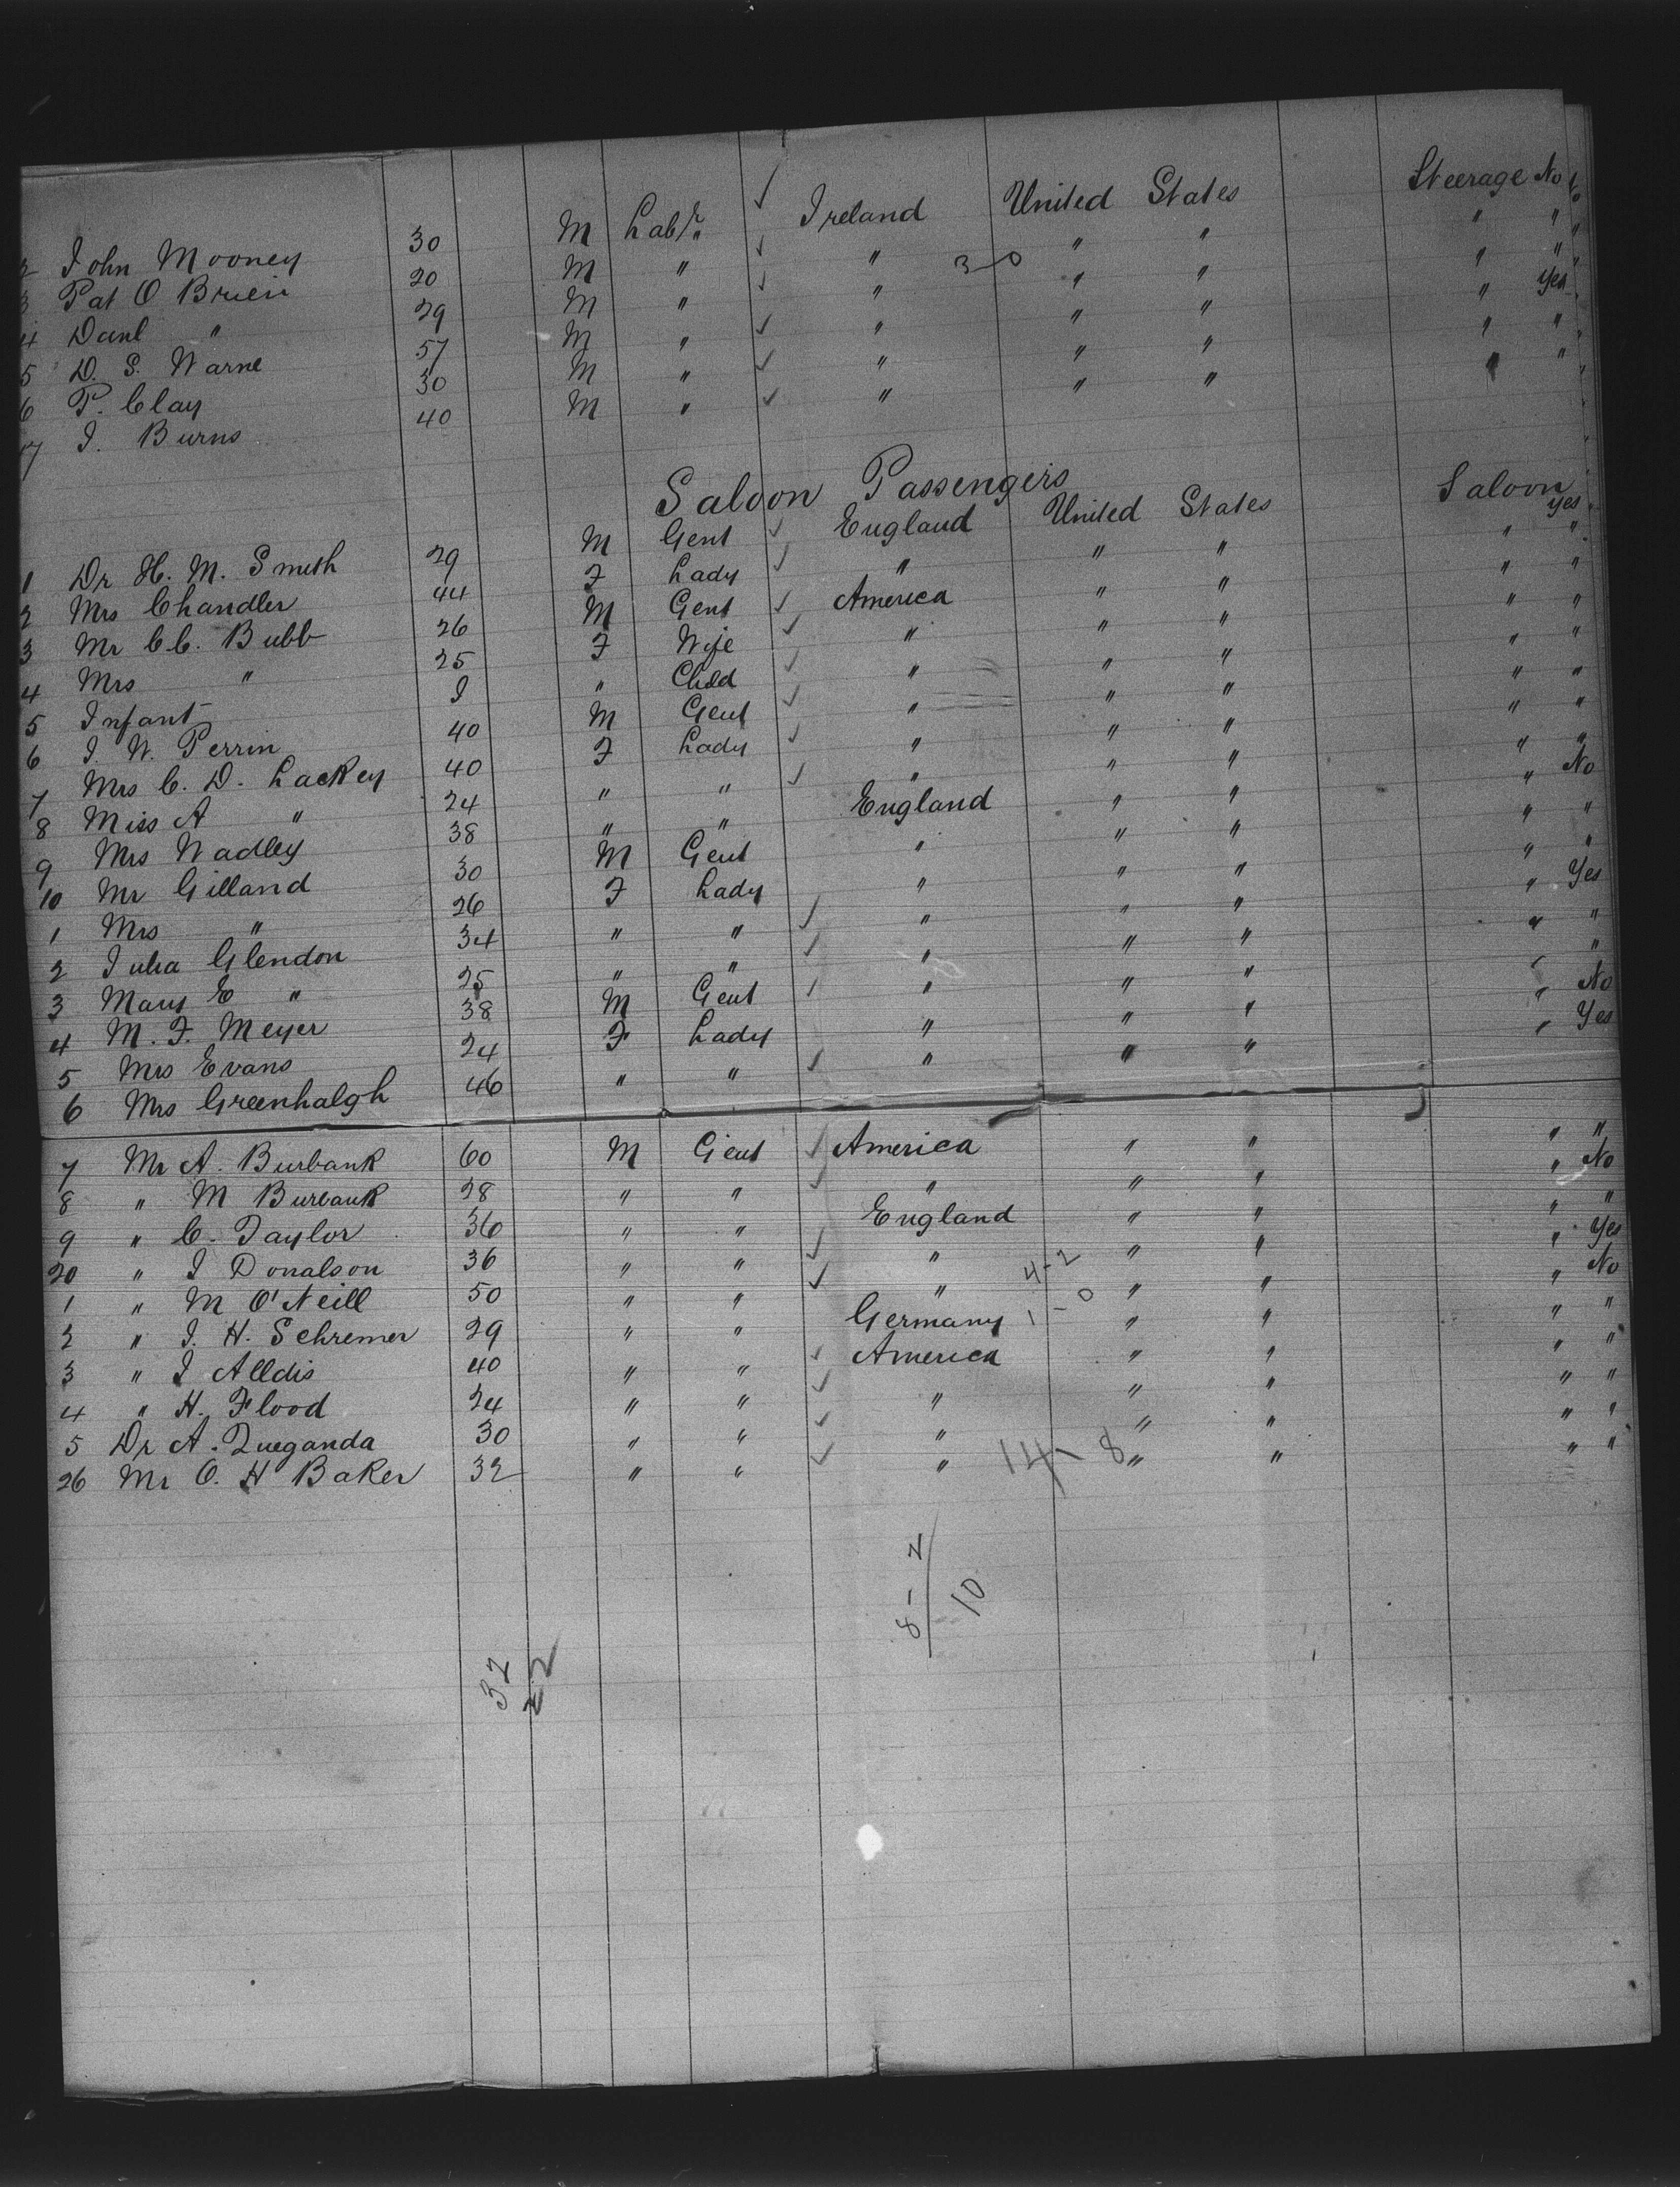 2 John Mooney 30 M Labr Ireland United States Steerage No
3 Pat O Brien 20 M " " " " " "
4 Danl " 29 M " " " " " "
5 D. S. Warne 57 M " " " " " Yes
6 P. Clay 30 M " " " " " "
7 J. Burns 40 M " " " " " "
3-0
Saloon Passengers
1 Dr H. M. Smith 29 M Gent England United States Saloon Yes
2 Mrs Chandler 44 F Lady " " " " "
3 Mr C. C. Bubb 26 M Gent America " " " "
4 Mrs " 25 F Wife " " " " "
5 Infant 1 " Child " " " " "
6 J. W. Perrin 40 M Gent " " " " "
7 Mrs C. D. Lackey 40 F Lady " " " " "
8 Miss A " 24 " " " " " " "
9 Mrs Wadley 38 " " England " " " No
10 Mr Gilland 30 M Gent " " " " "
1 Mrs " 26 F Lady " " " " "
2 Julia Glendon 34 " " " " " " Yes
3 Mary E " 25 " " " " " " "
4 M. F. Meyer 38 M Gent " " " " "
5 Mrs Evans 24 F Lady " " " " No
6 Mrs Greenhalgh 46 " " " " " " Yes
7 Mr A. Burbank 60 M Gent America " " " "
8 " M Burbank 28 " " " " " " No
9 " C. Taylor 36 " " England " " " "
20 " J Donalson 36 " " " " " " Yes
1 " M O'Neill 50 " " " 4-2 " " " No
2 " J. H. Schremer 29 " " Germany 1-0 " " " "
3 " J Alldis 40 " " America " " " "
4 " H. Flood 24 " " " " " " "
5 Dr A. Zueganda 30 " " " " " " "
26 Mr O. H Baker 32 " " " 14-8 " " " "
8-2
10
32
22